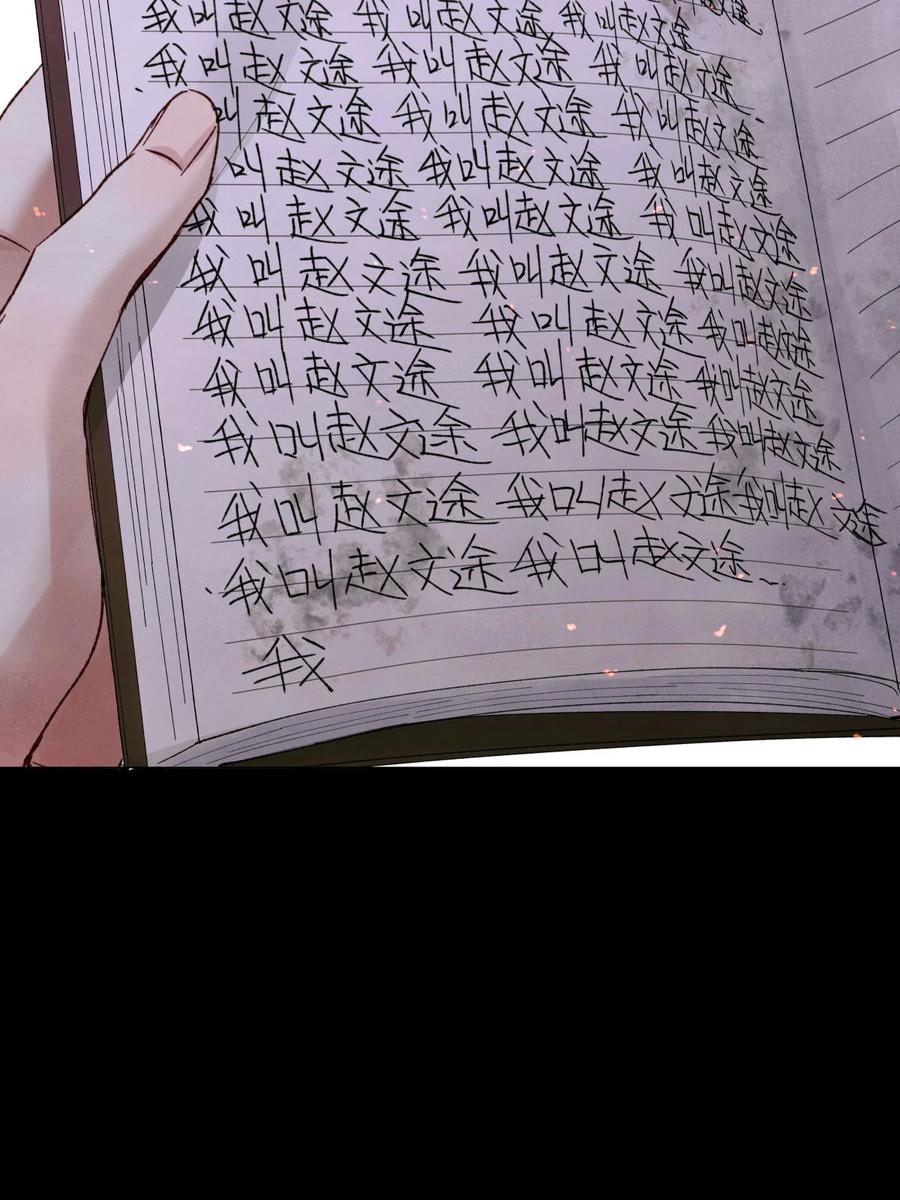 我叫赵文途 我叫赵文途 我叫赵文途
我叫赵文途 我叫赵文途 我叫赵文途
叫赵文途 我叫赵文途 我叫赵文途
叫赵文途 我叫赵文途 我叫赵文途
我叫赵文途 我叫赵文途 我叫赵文途
我叫赵文途 我叫赵文途 我叫赵文途
我叫赵文途 我叫赵文途 我叫赵文途
我叫赵文途 我叫赵文途 我叫赵文途
我叫赵文途 我叫赵文途 我叫赵文途
我叫赵文途 我叫赵文途 我叫赵文途
我叫赵文途 我叫赵文途
我